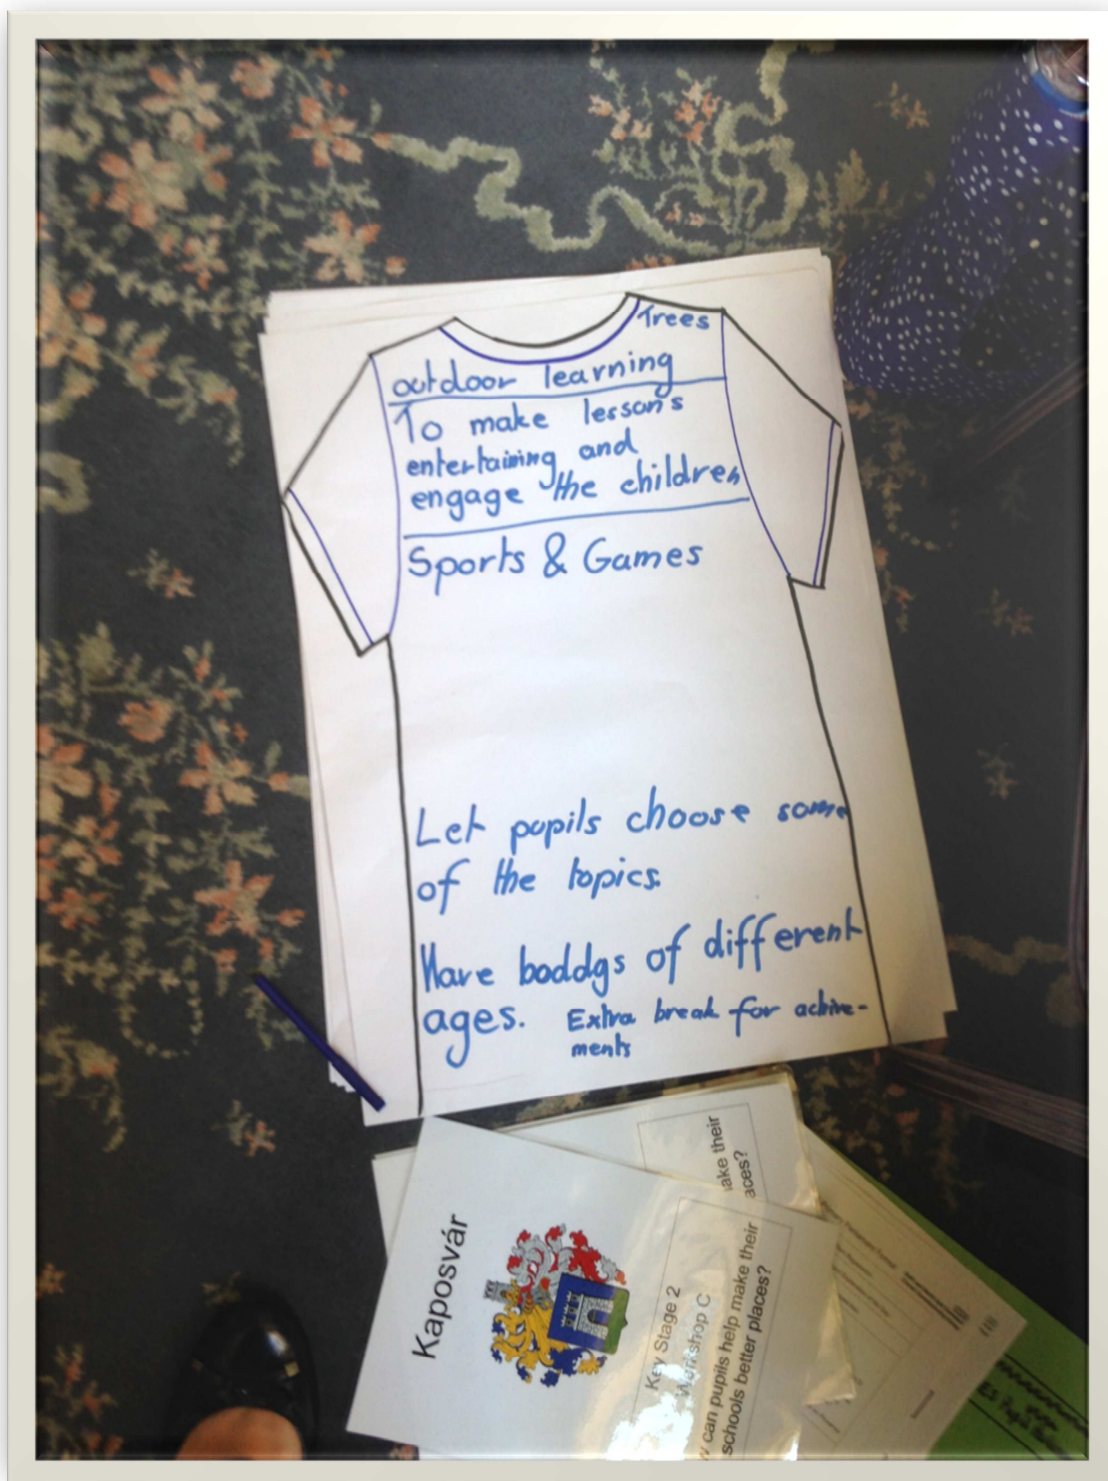 Trees
outdoor learning
To make lesson's
entertaining and
engage the children
Sports & Games
Let pupils choose some
of the topics.
Have boddgs of different
ages. Extra break for achive-
ments
Kaposvár
Key Stage 2
Workshop C
can pupils help make their
schools better places?
their